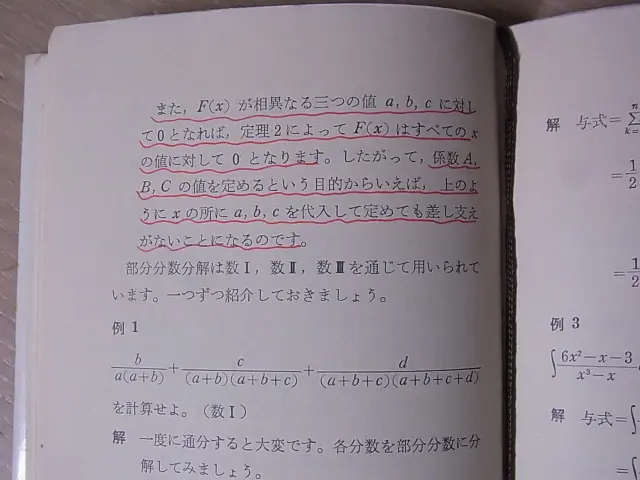 また，F(x) が相異なる三つの値 a, b, c に対し
て0となれば，定理2によって F(x) はすべての x
の値に対して 0 となります。したがって，係数 A,
B, C の値を定めるという目的からいえば，上のよ
うに x の所に a, b, c を代入して定めても差し支え
がないことになるのです。
部分分数分解は数Ⅰ，数Ⅱ，数Ⅲを通じて用いられて
います。一つずつ紹介しておきましょう。
例 1
b/a(a+b) + c/(a+b)(a+b+c) + d/(a+b+c)(a+b+c+d)
を計算せよ。（数Ⅰ）
解 一度に通分すると大変です。各分数を部分分数に分
解してみましょう。
解 与式=
=1/2
=1/2
例 3
∫ 6x²−x−3/x³−x
解 与式=∫
=∫